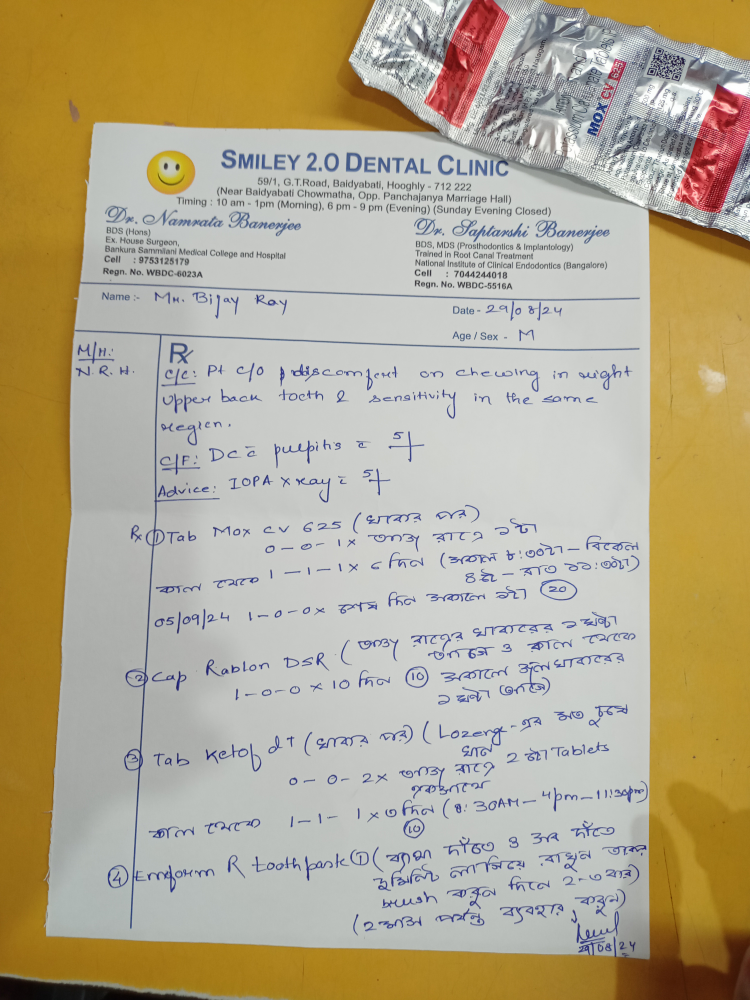 MOX CV 625
SMILEY 2.O DENTAL CLINIC
59/1, G.T.Road, Baidyabati, Hooghly - 712 222
(Near Baidyabati Chowmatha, Opp. Panchajanya Marriage Hall)
Timing : 10 am - 1pm (Morning), 6 pm - 9 pm (Evening) (Sunday Evening Closed)
Dr. Namrata Banerjee
BDS (Hons)
Ex. House Surgeon,
Bankura Sammilani Medical College and Hospital
Cell : 9753125179
Regn. No. WBDC-6023A
Dr. Saptarshi Banerjee
BDS, MDS (Prosthodontics & Implantology)
Trained in Root Canal Treatment
National Institute of Clinical Endodontics (Bangalore)
Cell : 7044244018
Regn. No. WBDC-5516A
Name :- Mr. Bijay Ray
Date - 29/08/24
Age / Sex - M
M/H:
N.R.H.
Rx
C/C: Pt c/o discomfort on chewing in right
upper back tooth & sensitivity in the same
region.
C/F: DC c̄ pulpitis c̄ 5
Advice: IOPA X ray c̄ 5
Rx ① Tab Mox CV 625 (খাবার পর)
0-0-1 x আজ রাত্রে ১টা
কাল থেকে 1-1-1 x ৬ দিন (সকাল ৮:৩০টা - বিকেল
৪টে - রাত ১১:৩০টা)
05/09/24 1-0-0 x শেষ দিন সকালে ১টা (20)
② Cap Rablon DSR (আজ রাত্রের খাবারের ১ ঘন্টা
আগে ও কাল থেকে
1-0-0 x 10 দিন (10) সকালে জলখাবারের
১ ঘন্টা আগে)
③ Tab Ketof dT (খাবার পর) (Lozeng-এর মত চুষে
খান
0-0-2 x আজ রাত্রে 2 টো Tablets
একসাথে
কাল থেকে 1-1-1 x ৩ দিন (8:30AM - 4pm - 11:30pm)
(10)
④ Emoform R toothpaste ① (ব্যথা দাঁতে ও সব দাঁতে
মিনিট লাগিয়ে রাখুন তারপর
brush করুন দিনে 2-৩ বার)
(2 মাস পর্যন্ত ব্যবহার করুন)
29/08/24